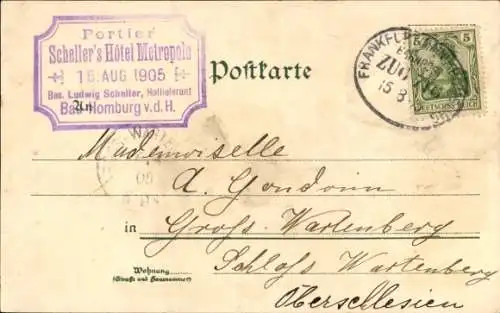 Portier
Scheller's Hôtel Metropole
15. AUG 1905
Bes. Ludwig Scheller, Hoflieferant
Bad Homburg v.d.H.
Postkarte
FRANKFURT
ZUG
15 8
5 5
DEUTSCHES REICH
An
Mademoiselle
A. Gondoin
in Groß-Wartenberg
Schloß Wartenberg
Wohnung
(Straße und Hausnummer)
Oberschlesien